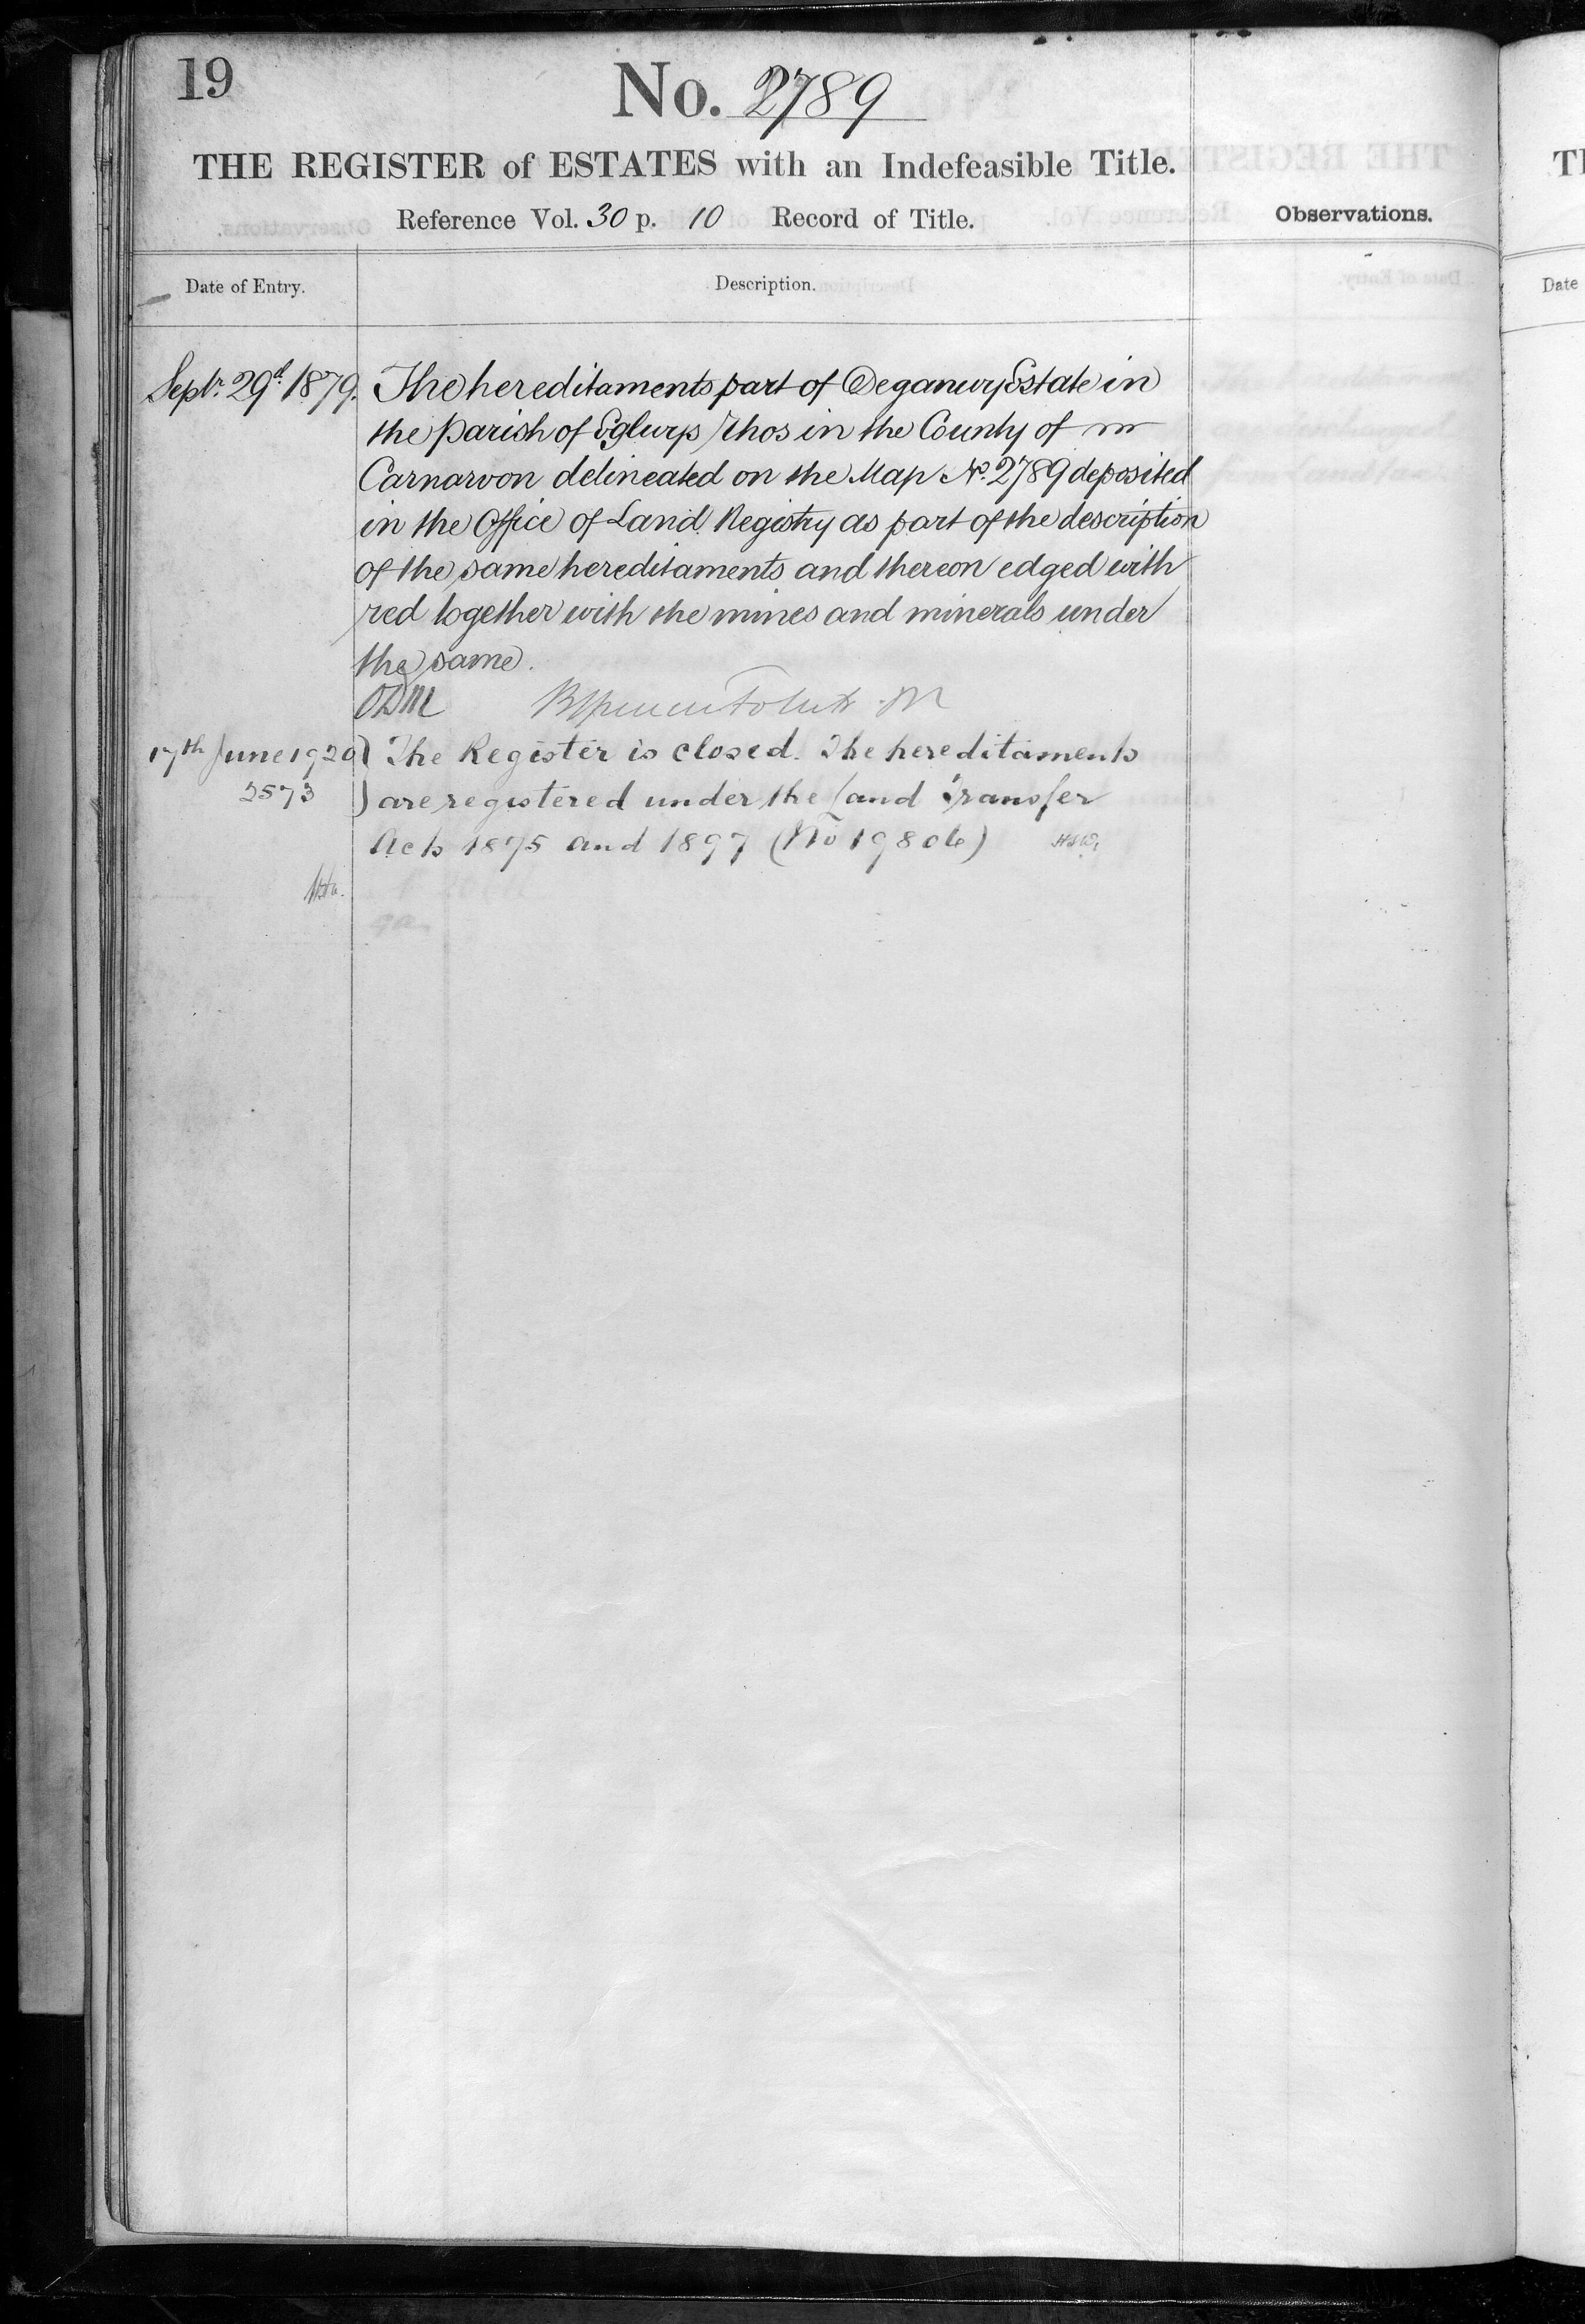 19
No. 2789
THE REGISTER of ESTATES with an Indefeasible Title.
Reference Vol. 30 p. 10 Record of Title.
Observations.
Date of Entry.
Description.
Septr. 29th 1879. The hereditaments part of Deganwy Estate in
the parish of Eglwys Rhos in the County of
Carnarvon delineated on the Map No. 2789 deposited
in the Office of Land Registry as part of the description
of the same hereditaments and thereon edged with
red together with the mines and minerals under
the same.
17th June 1920 ) The Register is closed. The hereditaments
2573 ) are registered under the Land Transfer
Acts 1875 and 1897 (No 19806)
Date